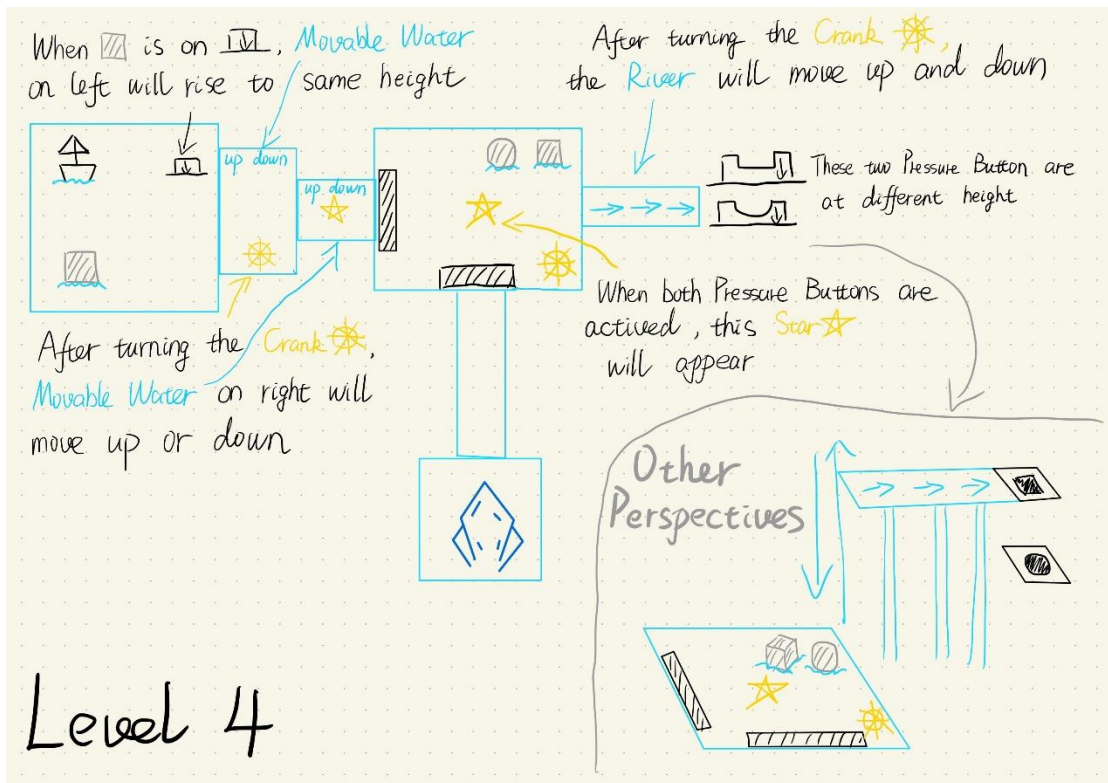 When is on , Movable Water
on left will rise to same height
After turning the Crank ,
the River will move up and down
up down
up down
These two Pressure Button are
at different height
When both Pressure Buttons are
actived , this Star
will appear
After turning the Crank ,
Movable Water on right will
move up or down
Other
Perspectives
Level 4